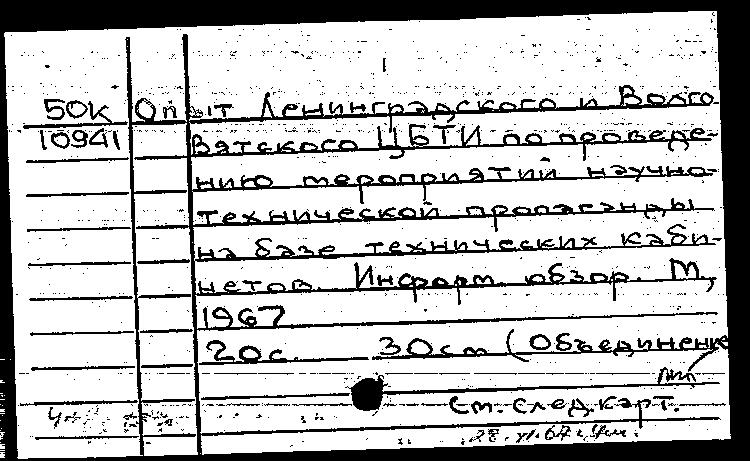 50К Опыт Ленинградского и Волго
10941 Вятского ЦБТИ по проведе-
нию мероприятий научно-
технической пропаганды
на базе технических каби-
нетов. Информ. обзор. М.,
1967
20с. 30см (Объединение
См. след. карт.